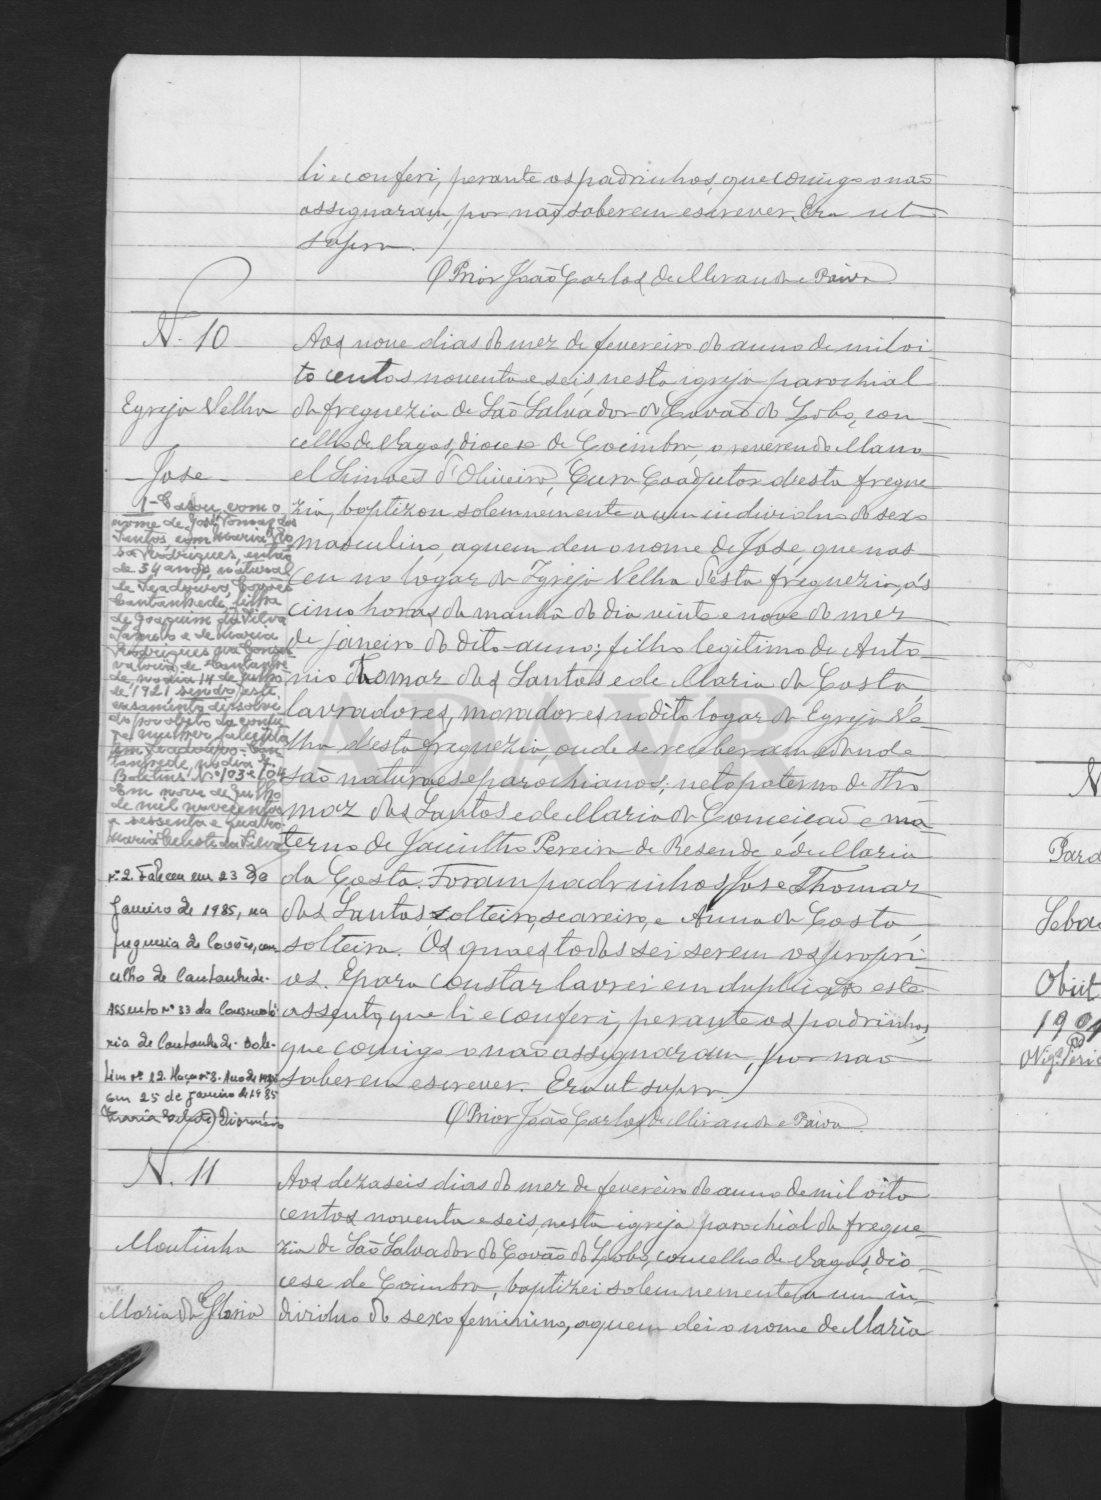 li e conferi, perante os padrinhos, que comigo o não
assignaram, por não saberem escrever. Era ut
supra.
O Prior João Carlos de Miranda e Paiva
N. 10
Egreja Velha
Jose
1- Casou com o
nome de José Tomaz dos
Santos com Maria
Rodrigues, então
de 34 anos, natural
de
Cantanhede, filha
de Joaquim da Silva
e de Maria
Rodrigues na Conser
vatoria de Cantanhe
de, no dia 14 de
de 1921 sendo este
casamento dissolvi
do por obito da conju
ge mulher falecida
em
tanhede, no dia
Boletins Nº 103 e 104
Em nove de Julho
de mil novecentos
e sessenta e quatro.
Maria Celeste da Silva
nº 2. Faleceu em 23 de
Janeiro de 1985, na
freguesia de Covões, con
celho de Cantanhede.
Assento nº 33 da Conservató
ria de Cantanhede. Bole-
tim nº 12. Maço nº 8. Ano de
Em 25 de Janeiro de 1985
Aos nove dias do mez de fevereiro do anno de mil oi
to centos noventa e seis, nesta igreja parochial
da freguezia de São Salvador do Covão do Lobo, con
celho de Vagos, diocese de Coimbra, o reverendo Mano
el Simões d'Oliveira, Cura Coadjutor desta fregue
zia, baptizou solemnemente a um individuo do sexo
masculino, a quem deu o nome de José, que nas
ceu no logar da Igreja Velha desta freguezia, ás
cinco horas da manhã do dia vinte e nove do mez
de janeiro do dito anno; filho legitimo de Anto
nio Thomaz dos Santos e de Maria da Costa
lavradores, moradores no dito logar da Egreja Ve
lha, desta freguezia, onde se receberam e donde
são naturaes e parochianos; neto paterno de Tho
maz dos Santos e de Maria da Conceição e ma
terno de Jacintho Pereira de Resende e de Maria
da Costa. Foram padrinhos José Thomaz
dos Santos solteiro, seareiro, e Anna da Costa,
solteira. Os quaes todos sei serem os propri
os. E para constar lavrei em duplicado este
assento, que li e conferi, perante os padrinhos,
que comigo o não assignaram, por não
saberem escrever. Era ut supra.
O Prior João Carlos de Miranda e Paiva
N. 11
Moutinha
Maria da Gloria
Aos dezaseis dias do mez de fevereiro do anno de mil oito
centos noventa e seis, nesta igreja parochial da fregue
zia de São Salvador do Covão do Lobo, concelho de Vagos, dio
cese de Coimbra, baptizei solemnemente a um in
dividuo do sexo feminino, a quem dei o nome de Maria
ADAVR
N
Para
Seba
Obiit